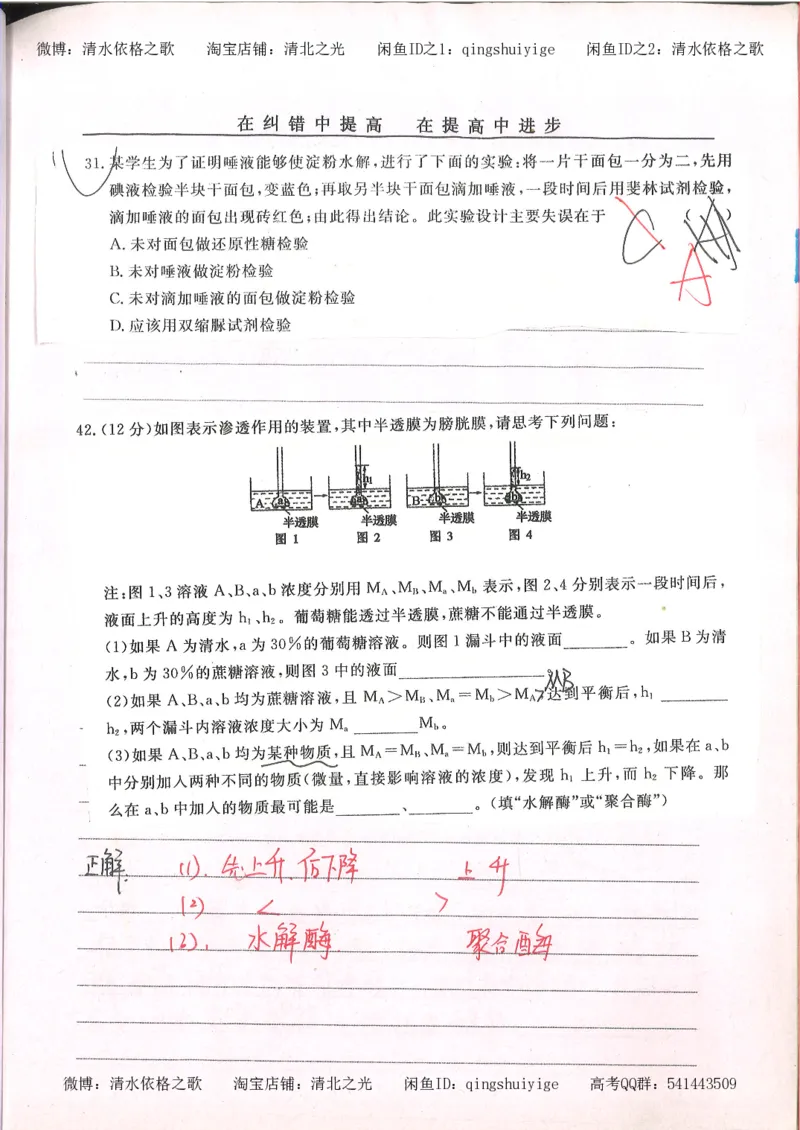 微博：清水依格之歌 淘宝店铺：清北之光 闲鱼ID之1：qingshuiyige 闲鱼ID之2：清水依格之歌
在纠错中提高 在提高中进步
31.某学生为了证明唾液能够使淀粉水解,进行了下面的实验:将一片干面包一分为二,先用
碘液检验半块干面包,变蓝色;再取另半块干面包滴加唾液,一段时间后用斐林试剂检验,
滴加唾液的面包出现砖红色;由此得出结论。此实验设计主要失误在于 ( )
C A
A.未对面包做还原性糖检验
B.未对唾液做淀粉检验
C.未对滴加唾液的面包做淀粉检验
D.应该用双缩脲试剂检验
42.(12分)如图表示渗透作用的装置,其中半透膜为膀胱膜,请思考下列问题:
A a h1 a B b h2 b
半透膜 半透膜 半透膜 半透膜
图 1 图 2 图 3 图 4
注:图1、3溶液A、B、a、b浓度分别用MA、MB、Ma、Mb表示,图2、4分别表示一段时间后,
液面上升的高度为h1、h2。葡萄糖能透过半透膜,蔗糖不能通过半透膜。
(1)如果A为清水,a为30%的葡萄糖溶液。则图1漏斗中的液面________。如果B为清
水,b为30%的蔗糖溶液,则图3中的液面________________
MB
(2)如果A、B、a、b均为蔗糖溶液,且MA>MB、Ma=Mb>MA,达到平衡后,h1 ________
h2,两个漏斗内溶液浓度大小为Ma ________Mb。
(3)如果A、B、a、b均为某种物质,且MA=MB、Ma=Mb,则达到平衡后h1=h2,如果在a、b
中分别加入两种不同的物质(微量,直接影响溶液的浓度),发现h1上升,而h2下降。那
么在a、b中加入的物质最可能是________、________。(填“水解酶”或“聚合酶”)
正解: (1). 先上升,后下降 上升
(2) < >
(2). 水解酶 聚合酶
微博：清水依格之歌 淘宝店铺：清北之光 闲鱼ID：qingshuiyige 高考QQ群：541443509